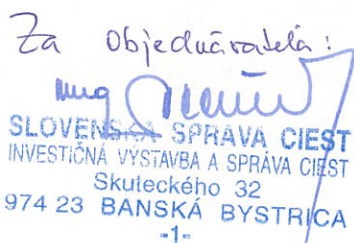 Za objednávateľa:
SLOVENSKÁ SPRÁVA CIEST
INVESTIČNÁ VÝSTAVBA A SPRÁVA CIEST
Skuteckého 32
974 23 BANSKÁ BYSTRICA
-1-